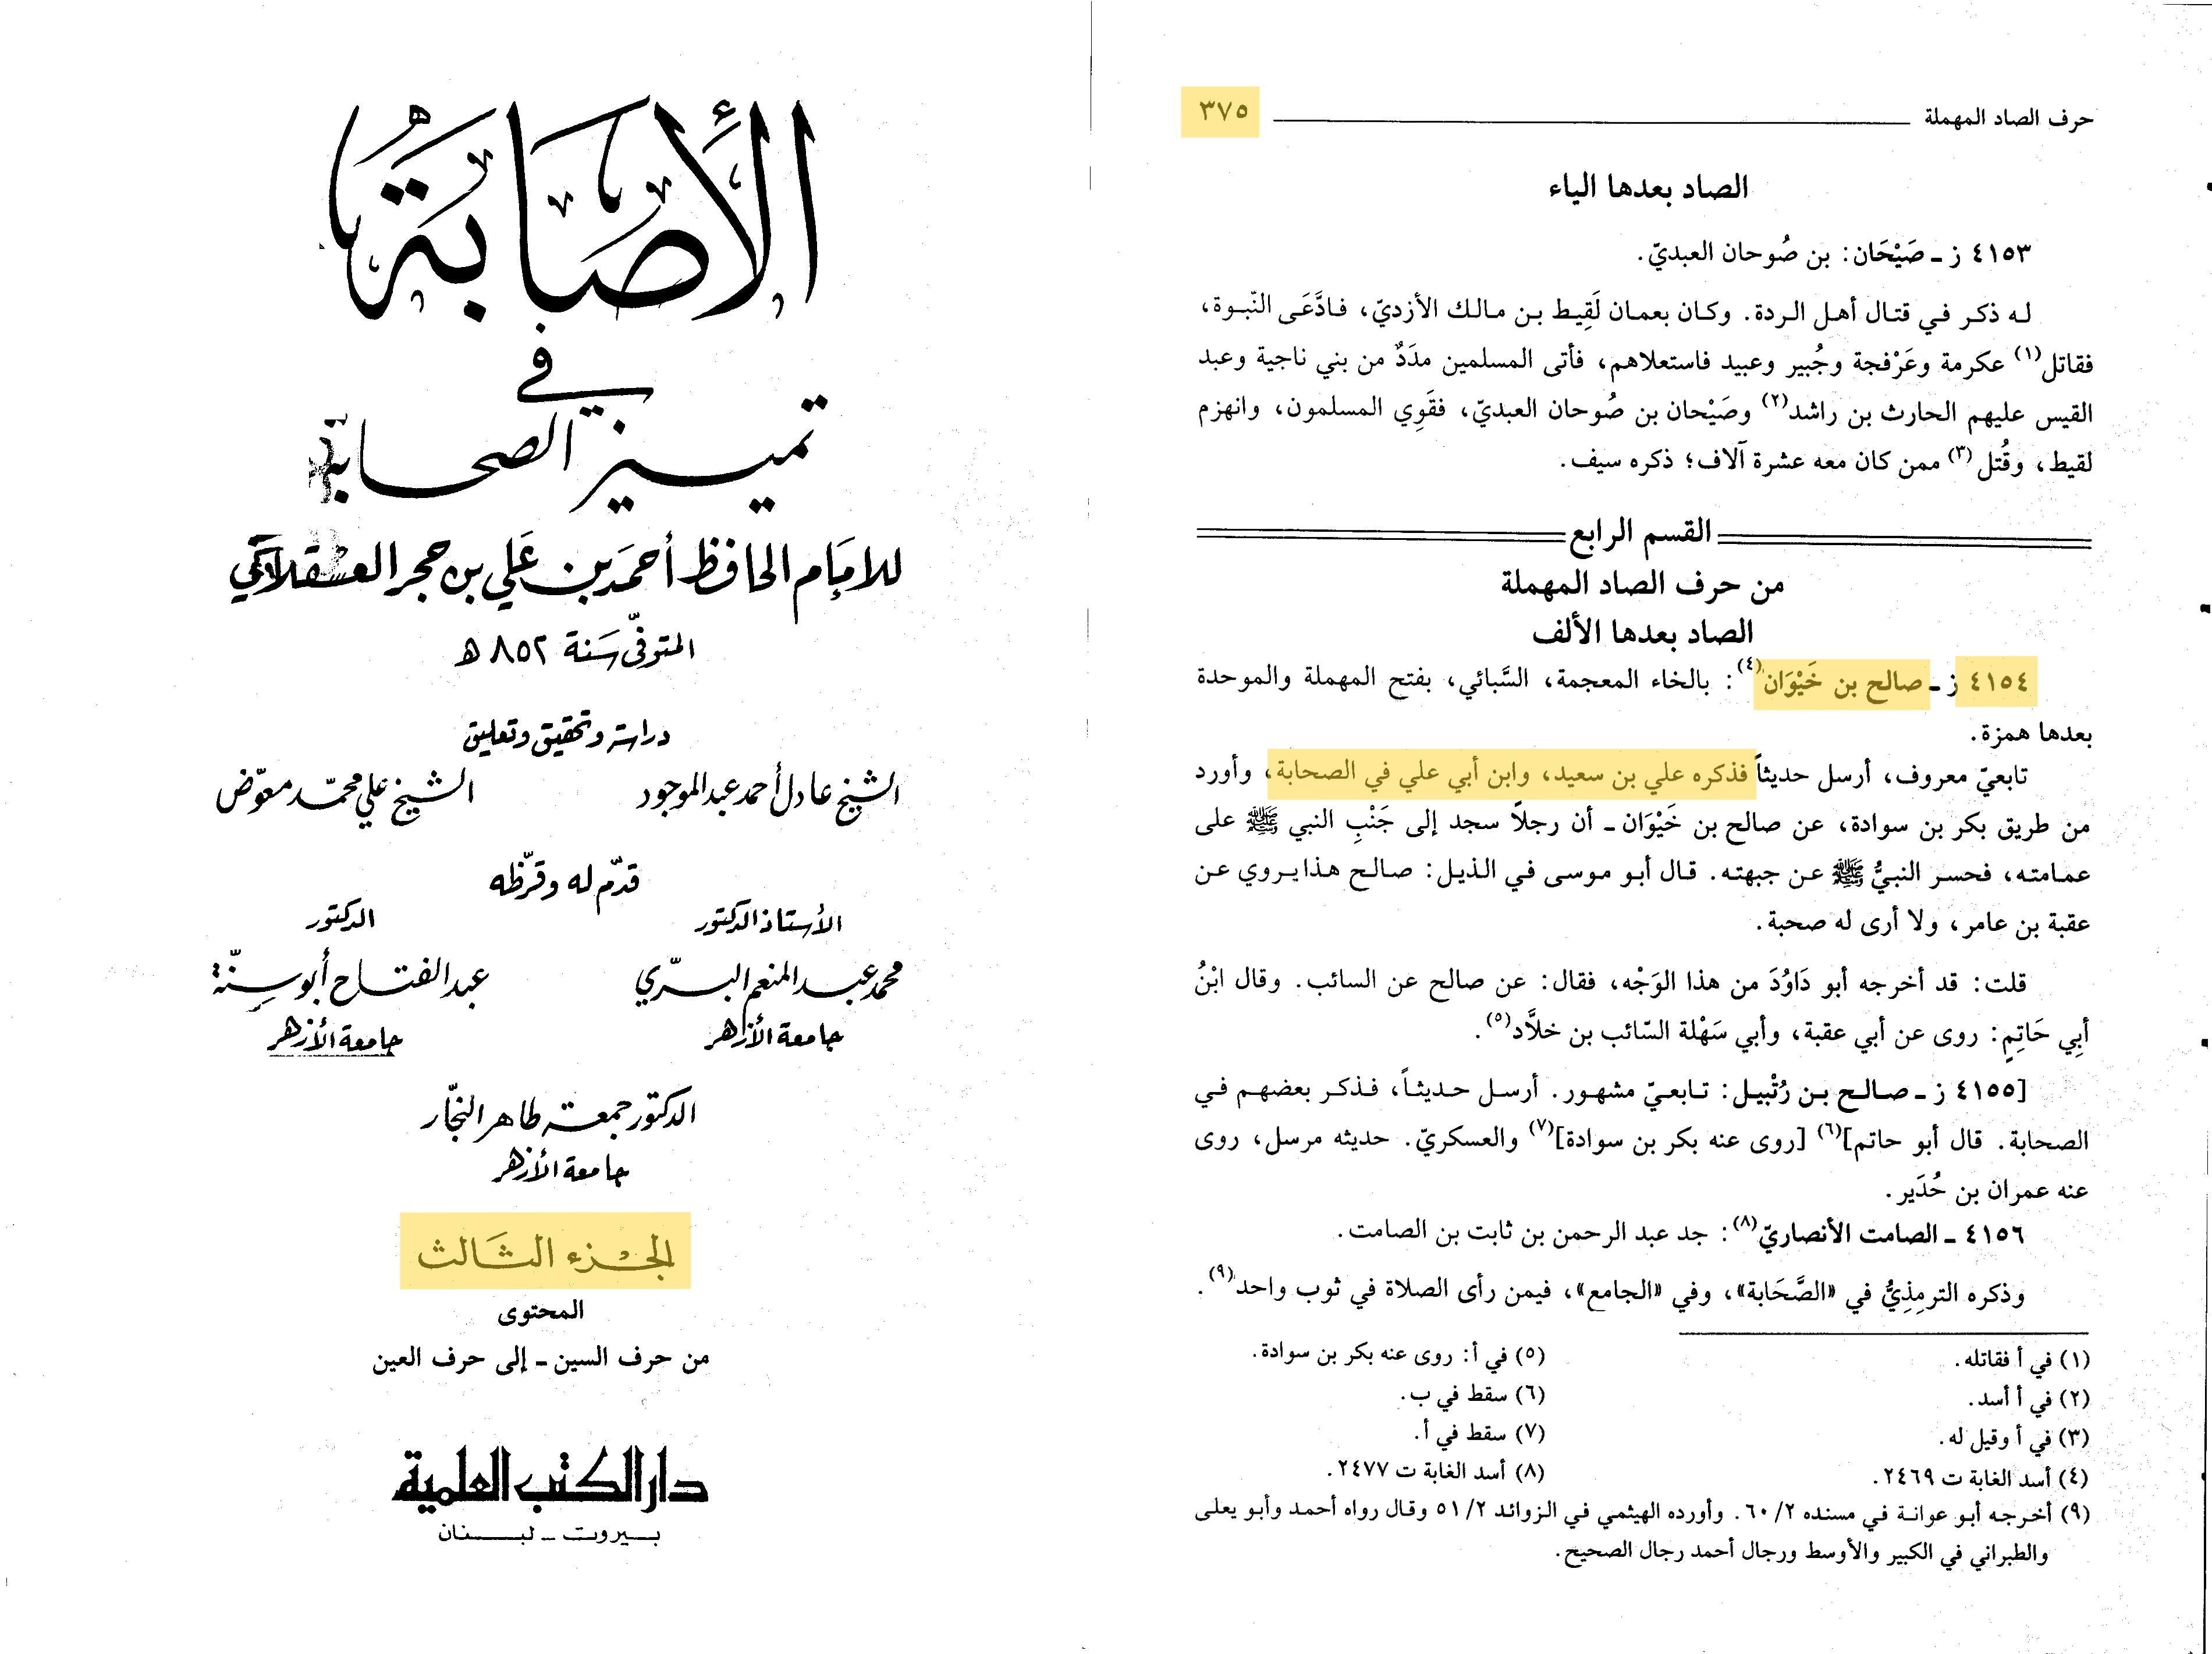 حرف الصاد المهملة ٣٧٥
الصاد بعدها الياء
٤١٥٣ ز ـ صَيْحَان: بن صُوحان العبديّ.
له ذكر في قتال أهل الردة. وكان بعمان لَقِيط بن مالك الأزديّ، فادَّعَى النّبوة،
فقاتل(١) عكرمة وعَرْفجة وجُبير وعبيد فاستعلاهم، فأتى المسلمين مدَدٌ من بني ناجية وعبد
القيس عليهم الحارث بن راشد(٢) وصَيْحان بن صُوحان العبديّ، فقَوِي المسلمون، وانهزم
لقيط، وقُتل(٣) ممن كان معه عشرة آلاف؛ ذكره سيف.
القسم الرابع
من حرف الصاد المهملة
الصاد بعدها الألف
٤١٥٤ ز ـ صالح بن خَيْوَان(٤): بالخاء المعجمة، السَّبائي، بفتح المهملة والموحدة
بعدها همزة.
تابعيّ معروف، أرسل حديثاً فذكره علي بن سعيد، وابن أبي علي في الصحابة، وأورد
من طريق بكر بن سوادة، عن صالح بن خَيْوَان ـ أن رجلاً سجد إلى جَنْبِ النبي ﷺ على
عمامته، فحسر النبيُّ ﷺ عن جبهته. قال أبو موسى في الذيل: صالح هذا يروي عن
عقبة بن عامر، ولا أرى له صحبة.
قلت: قد أخرجه أبو دَاوُدَ من هذا الوَجْه، فقال: عن صالح عن السائب. وقال ابْنُ
أبِي حَاتِمٍ: روى عن أبي عقبة، وأبي سَهْلة السّائب بن خلاَّد(٥).
[٤١٥٥ ز ـ صالح بن رُتْبيل: تابعيّ مشهور. أرسل حديثاً، فذكر بعضهم في
الصحابة. قال أبو حاتم](٦) [روى عنه بكر بن سوادة](٧) والعسكريّ. حديثه مرسل، روى
عنه عمران بن حُدَير.
٤١٥٦ ـ الصامت الأنصاريّ(٨): جد عبد الرحمن بن ثابت بن الصامت.
وذكره الترمِذِيُّ في «الصَّحَابة»، وفي «الجامع»، فيمن رأى الصلاة في ثوب واحد(٩).
(١) في أ فقاتله.
(٢) في أ أسد.
(٣) في أ وقيل له.
(٤) أسد الغابة ت ٢٤٦٩.
(٥) في أ: روى عنه بكر بن سوادة.
(٦) سقط في ب.
(٧) سقط في أ.
(٨) أسد الغابة ت ٢٤٧٧.
(٩) أخرجه أبو عوانة في مسنده ٢/٦٠. وأورده الهيثمي في الزوائد ٢/٥١ وقال رواه أحمد وأبو يعلى
والطبراني في الكبير والأوسط ورجال أحمد رجال الصحيح.
الأصَابَةُ
في
تمييز الصحابة
للامَام الحافظ أحمَد بن عَلي بن حجر العسقلاني
المتوفّى سَنة ٨٥٢ هـ
دراسة وتحقيق وتعليق
الشيخ عادل أحمد عبد الموجود الشيخ علي محمّد معوّض
قدّم له وقرّظه
الأستاذ الدكتور الدكتور
محمد عبد المنعم البرّي عبد الفتاح أبو سِنّة
جامعة الأزهر جامعة الأزهر
الدكتور جمعة طاهر النجّار
جامعة الأزهر
الجزء الثَالث
المحتوى
من حرف السين ـ إلى حرف العين
دار الكتب العلمية
بيروت ـ لبنان